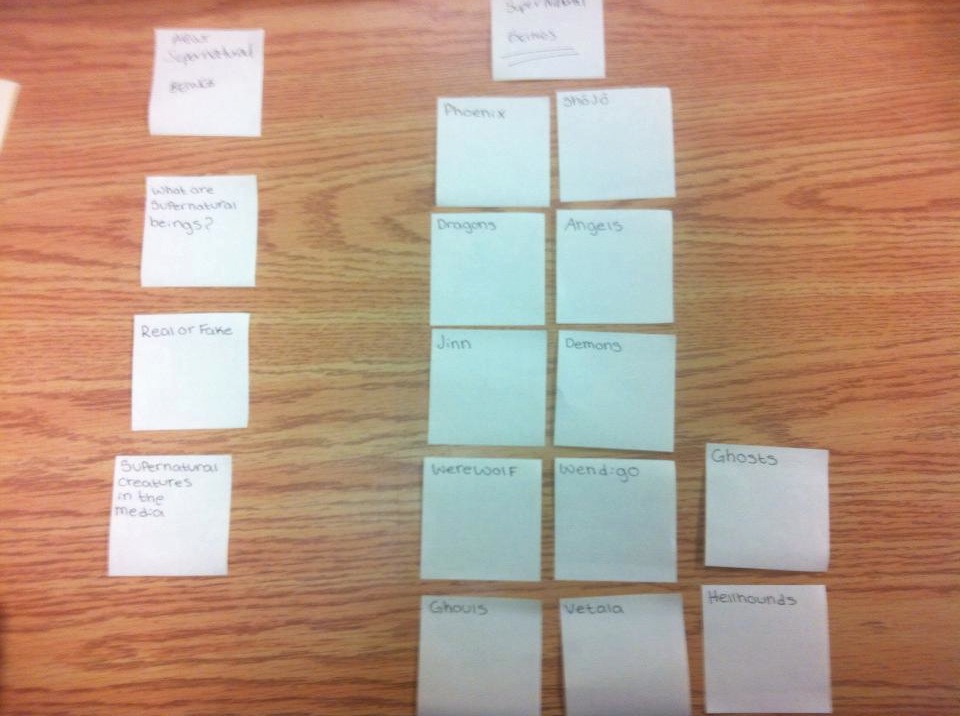 Supernatural
Beings
What are
Supernatural
beings?
Real or Fake
Supernatural
creatures
in the
media
Supernatural
Beings
Phoenix
Shōjō
Dragons
Angels
Jinn
Demons
Werewolf
Wendigo
Ghosts
Ghouls
Vetala
Hellhounds